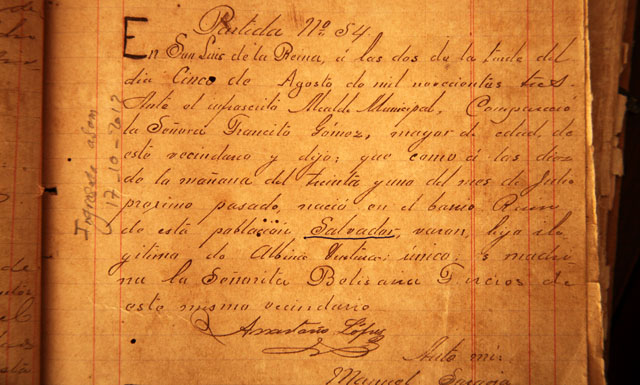 Partida Nº 54.
En San Luis de la Reina, á las dos de la tarde del
dia Cinco de Agosto de mil novecientos tres.
Ante el infrascrito Alcalde Municipal, Compareció
la Señora Francisca Gómez, mayor de edad de
este vecindario y dijo; que como á las diez
de la mañana del treinta y uno del mes de Julio
proximo pasado, nació en el barrio
de está población Salvador, varon, hijo ile
gitimo de Albina Ventura: única madri
na la Señorita Turcios de
este mismo vecindario
Anastacio López
Ante mi:
Manuel
17-10-2012